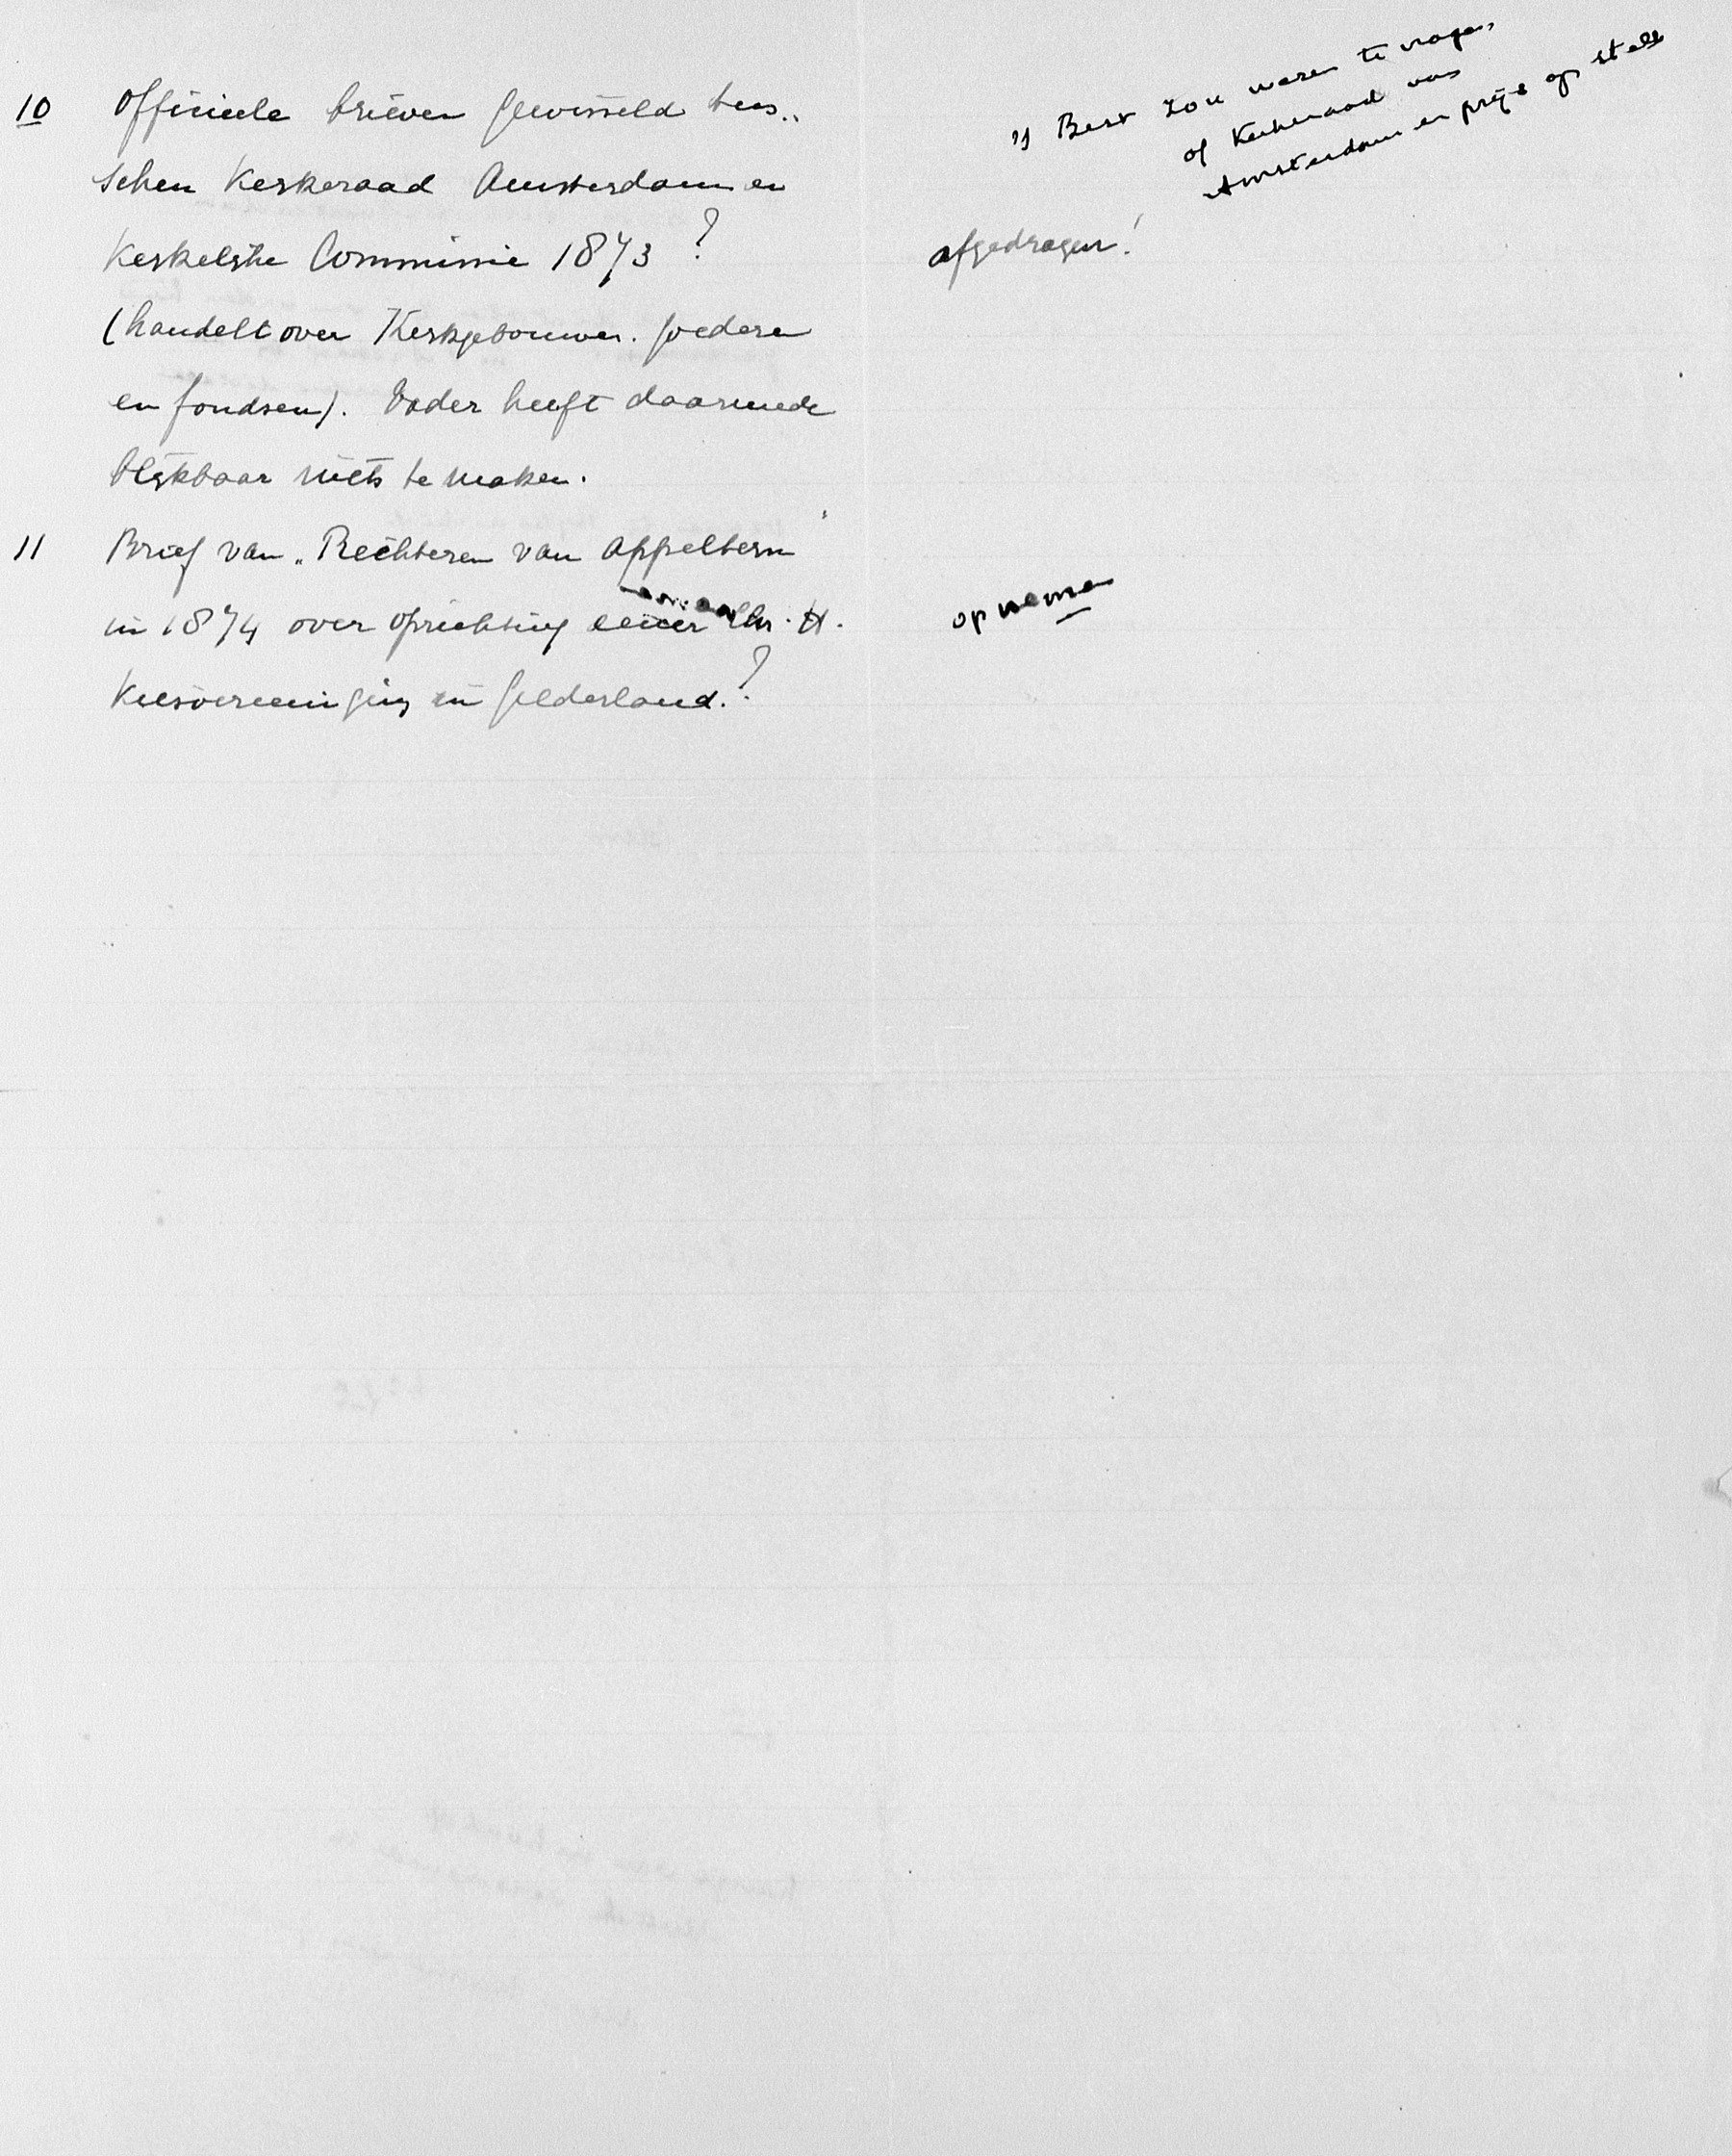 10 Officieele brieven gewisseld tus..
schen Kerkeraad Amsterdam en
Kerkelijke Commissie 1873?
(handelt over Kerkgebouwen. goederen
en fondsen). Vader heeft daarmede
blijkbaar niets te maken.
11 Brief van "Rechteren van Appeltern"
in 1874 over oprichting eener Chr. H.
Kiesvereeniging in Gelderland.?
Best zou waren te vragen
of Kerkeraad van
Amsterdam er prijs op stelt
afgedragen!
opnemen